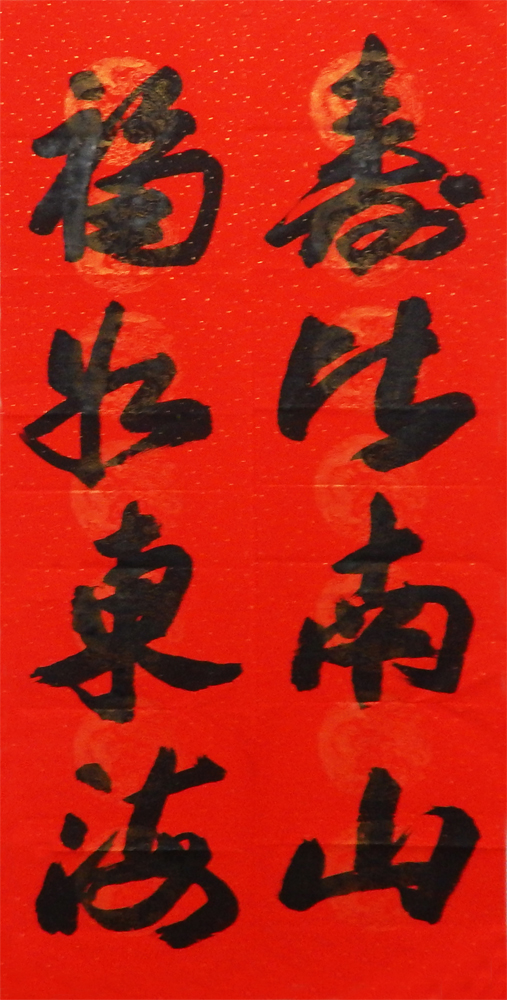 壽比南山
福如東海